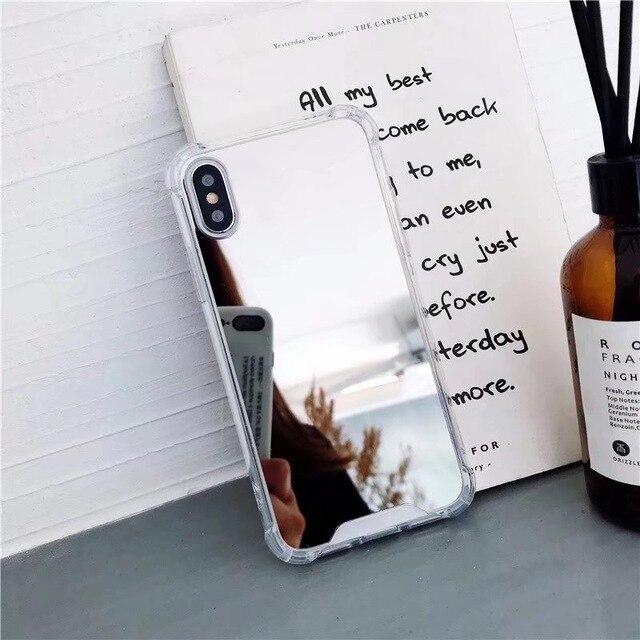 Yesterday Once More - THE CARPENTERS
All my best
come back
to me,
an even
cry just
efore.
terday
more.
FOR
R O
FRA
NIGH
Fresh, Gree
Top Notes:
Middle No
Geranium
Base Note
Benzoin, C
DRIZZLE